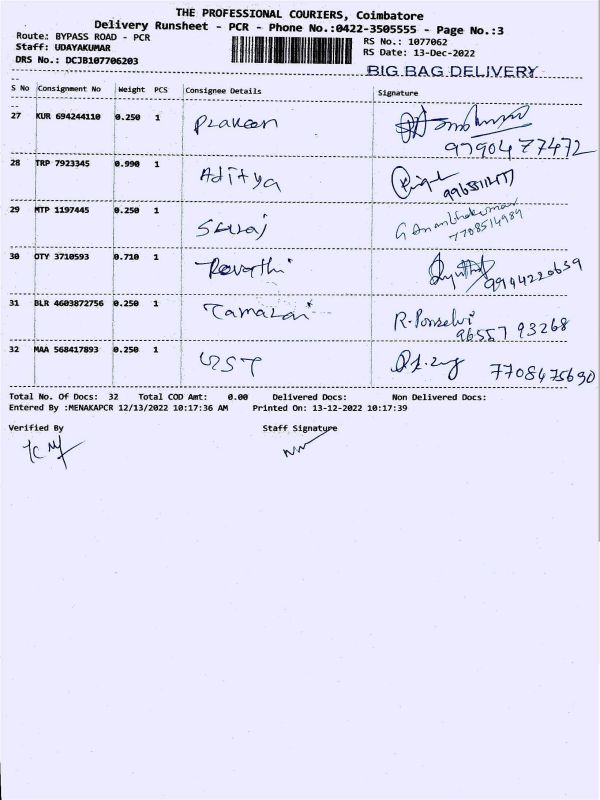 THE PROFESSIONAL COURIERS, Coimbatore
Delivery Runsheet - PCR - Phone No.:0422-3505555 - Page No.:3
Route: BYPASS ROAD - PCR RS No.: 1077062
Staff: UDAYAKUMAR RS Date: 13-Dec-2022
DRS No.: DCJB107706203
BIG BAG DELIVERY
S No Consignment No Weight PCS Consignee Details Signature
27 KUR 694244110 0.250 1 Praveen
9790477472
28 TRP 7923345 0.990 1 Aditya
29 MTP 1197445 0.250 1 Suraj
7708514989
30 OTY 3710593 0.710 1 Revathi
9944220659
31 BLR 4603872756 0.250 1 Tamarai R. Ponselvi
96557 93268
32 MAA 568417893 0.250 1 UST 7708475690
Total No. Of Docs: 32 Total COD Amt: 0.00 Delivered Docs: Non Delivered Docs:
Entered By :MENAKAPCR 12/13/2022 10:17:36 AM Printed On: 13-12-2022 10:17:39
Verified By Staff Signature